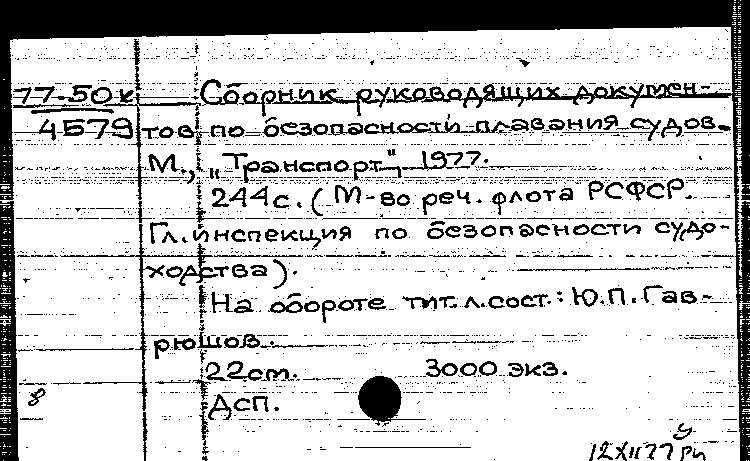 77-50к Сборник руководящих докумен-
4579 тов по безопасности плавания судов.
М., „Транспорт", 1977.
244с. (М-во реч. флота РСФСР.
Гл. инспекция по безопасности судо-
ходства).
На обороте тит. л. сост.: Ю.П. Гав-
рюшов.
22см. 3000 экз.
8 Дсп.